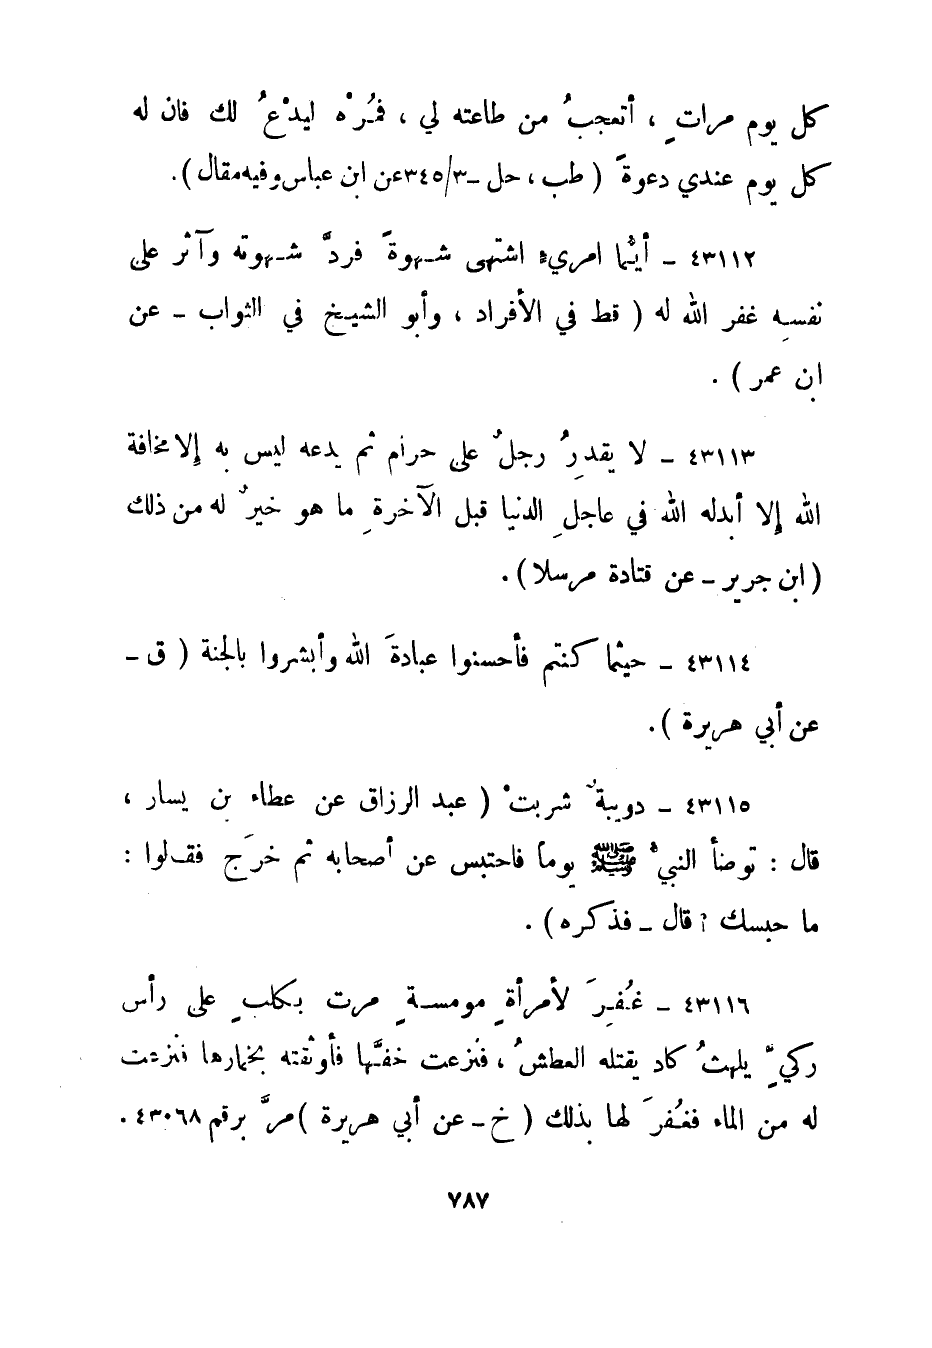 كل يوم مراتٍ ، أتعجبُ من طاعته لي ، فمُرْه ليدْعُ لك فان له
كل يوم عندي دعوةً ( طب ، حل - ٣٤٥/٣ عن ابن عباس وفيه مقال ) .
٤٣١١٢ - أيُّما امريءٍ اشتهى شهوةً فردَّ شهوته وآثر على
نفسِه غفر الله له ( قط في الأفراد ، وأبو الشيخ في الثواب - عن
ابن عمر ) .
٤٣١١٣ - لا يقدِرُ رجلٌ على حرام ثم يدعه ليس به إلا مخافة
الله إلا أبدله الله في عاجلِ الدنيا قبل الآخرةِ ما هو خيرٌ له من ذلك
( ابن جرير - عن قتادة مرسلا ) .
٤٣١١٤ - حيثما كنتم فأحسنوا عبادةَ الله وأبشروا بالجنة ( ق -
عن أبي هريرة ) .
٤٣١١٥ - دويبةٌ شربتْ ( عبد الرزاق عن عطاء بن يسار ،
قال : توضأ النبيُّ ﷺ يوماً فاحتبس عن أصحابه ثم خرَج فقالوا :
ما حبسك ؟ قال - فذكره ) .
٤٣١١٦ - غُفِرَ لأمرأةٍ مومسةٍ مرت بكلبٍ على رأس
ركيٍّ يلهثُ كاد يقتله العطشُ ، فنزعت خفَّها فأوثقته بخمارها فنزعت
له من الماء فغُفرَ لها بذلك ( خ - عن أبي هريرة ) مرَّ برقم ٤٣٠٦٨ .
٧٨٧